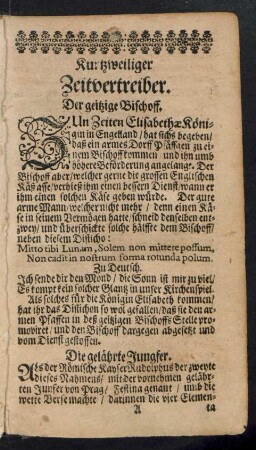 Kurtzweiliger
Zeitvertreiber.
Der geitzige Bischoff.
ZUn Zeiten Elisabethæ Köni-
gin in Engelland / hat sichs begeben /
daß ein armes Dorff Pfäffgen zu ei-
nem Bischoff kommen und ihn umb
höhere Beförderung angelangt. Der
Bischoff aber / welcher gerne die grossen Englischen
Käß asse / verhieß ihm einen bessern Dienst / wann er
ihm einen solchen Käse geben würde. Der gute
arme Mann / welcher nicht mehr / denn einen Kä-
se in seinem Vermögen hatte / schneid denselben ent-
zwey / und überschickte solche hälffte dem Bischoff /
neben diesem Disticho:
Mitto tibi Lunam, Solem non mittere possum,
Non cadit in nostrum forma rotunda polum.
Zu Deutsch.
Ich sende dir den Mond / die Sonn ist mir zu viel /
Es kompt kein solcher Glantz in unser Kirchenspiel.
Als solches für die Königin Elisabeth kommen /
hat ihr das Distichon so wol gefallen / daß sie den ar-
men Pfaffen in deß geitzigen Bischoffs Stelle pro-
moviret / und den Bischoff dargegen abgesetzt und
vom Dienst gestossen.
Die gelährte Jungfer.
Als der Römische Kayser Rudolphus der zweyte
dieses Nahmens / mit der vornehmen gelähr-
ten Junfer von Prag / Festina genant / umb die
wette Verse machte / darinnen die vier Elemen-
A ta